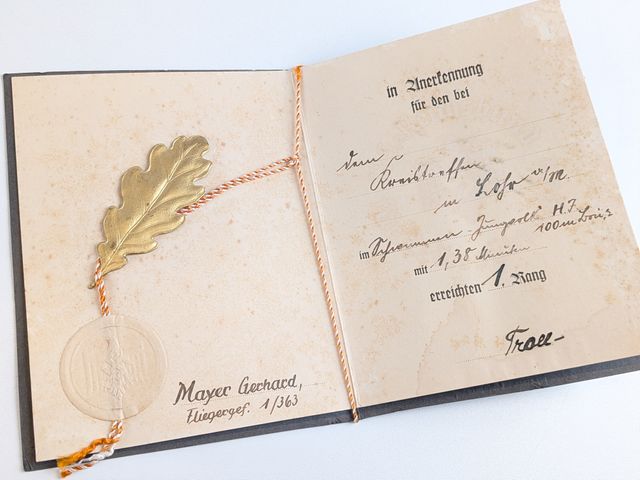 Mayer Gerhard,
Fliegergef. 1/363
in Anerkennung
für den bei
dem
Kreistreffen
in Lohr a/M.
im Schwimmen - Jungvolk H.J.
100m Brust
mit 1,38 Minuten
erreichten 1. Rang
Troll-